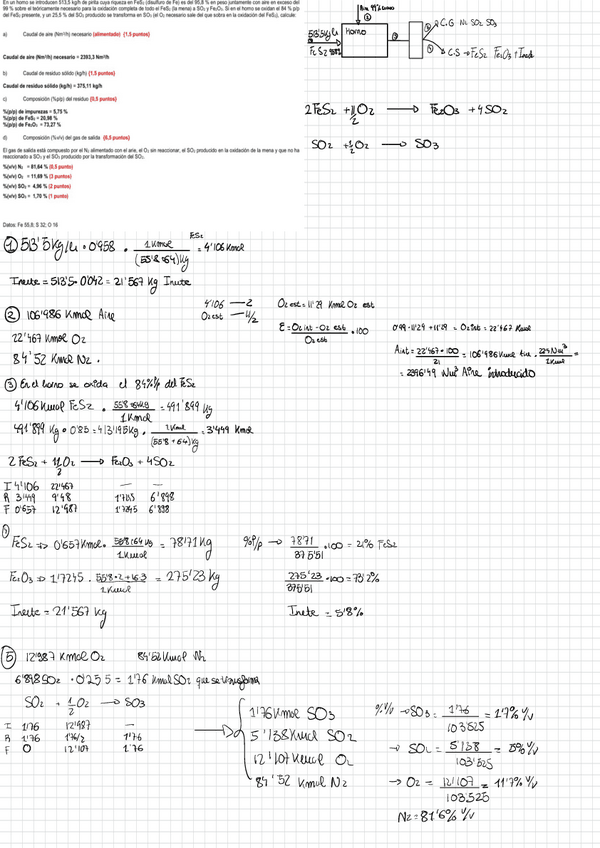 En un horno se introducen 513,5 kg/h de pirita cuya riqueza en FeS₂ (disulfuro de Fe) es del 95,8 % en peso juntamente con aire en exceso del
99 % sobre el teóricamente necesario para la oxidación completa de todo el FeS₂ (la mena) a SO₂ y Fe₂O₃. Si en el horno se oxidan el 84 % p/p
del FeS₂ presente, y un 25,5 % del SO₂ producido se transforma en SO₃ (el O₂ necesario sale del que sobra en la oxidación del FeS₂), calcular:
a) Caudal de aire (Nm³/h) necesario (alimentado) (1,5 puntos)
Caudal de aire (Nm³/h) necesario = 2393,3 Nm³/h
b) Caudal de residuo sólido (kg/h) (1,5 puntos)
Caudal de residuo sólido (kg/h) = 375,11 kg/h
c) Composición (%p/p) del residuo (0,5 puntos)
%(p/p) de impurezas = 5,75 %
%(p/p) de FeS₂ = 20,98 %
%(p/p) de Fe₂O₃ = 73,27 %
d) Composición (%v/v) del gas de salida (6,5 puntos)
El gas de salida está compuesto por el N₂ alimentado con el aire, el O₂ sin reaccionar, el SO₂ producido en la oxidación de la mena y que no ha
reaccionado a SO₃ y el SO₃ producido por la transformación del SO₂.
%(v/v) N₂ = 81,64 % (0,5 punto)
%(v/v) O₂ = 11,69 % (3 puntos)
%(v/v) SO₂ = 4,96 % (2 puntos)
%(v/v) SO₃ = 1,70 % (1 punto)
Datos: Fe 55,8; S 32; O 16
Aire 99% exceso
②
513'5 kg/h
FeS₂ 95'8%
Horno
③
④ C.G N₂ SO₂ SO₃
① C.S → FeS₂ Fe₂O₃ + Inert
2FeS₂ + 11/2 O₂ → Fe₂O₃ + 4SO₂
SO₂ + 1/2 O₂ → SO₃
① 513'5 Kg/h · 0'958 · 1 Kmol / (55'8+64) Kg = 4'106 Kmol FeS₂
Inerte = 513'5 · 0'042 = 21'567 Kg Inerte
② 106'986 Kmol Aire
22'467 Kmol O₂
84'52 Kmol N₂ .
4'106 — 2
O₂ est — 11/2
O₂ est = 11'29 Kmol O₂ est
E = O₂ int - O₂ est / O₂ est · 100
0'99 · 11'29 + 11'29 = O₂ int = 22'467 Kmol
Aint = 22'467 · 100 / 21 = 106'986 Kmol Aire · 22'4 Nm³ / 1 Kmol =
= 2396'49 Nm³ Aire introducido
③ En el horno se oxida el 84% P/p del FeS₂
4'106 Kmol FeS₂ · 55'8+64 Kg / 1 Kmol = 491'899 Kg
491'899 Kg · 0'84 = 413'195 Kg · 1 Kmol / (55'8+64) Kg = 3'449 Kmol
2 FeS₂ + 11/2 O₂ → Fe₂O₃ + 4SO₂
I 4'106 22'467 — —
R 3'449 9'48 1'7245 6'898
F 0'657 12'987 1'7245 6'898
①
FeS₂ => 0'657 Kmol · 55'8+64 Kg / 1 Kmol = 78'71 Kg
%P/p → 78'71 / 375'51 · 100 = 21% FeS₂
Fe₂O₃ => 1'7245 · 55'8·2+16·3 / 1 Kmol = 275'23 Kg
275'23 / 375'51 · 100 = 73'2%
Inerte = 21'567 Kg
Inerte = 5'8%
⑤ 12'987 Kmol O₂ 84'52 Kmol N₂
6'898 SO₂ · 0'255 = 1'76 Kmol SO₂ que se transforma
SO₂ + 1/2 O₂ → SO₃
I 1'76 12'987 —
R 1'76 1'76/2 1'76
F 0 12'107 1'76
1'76 Kmol SO₃
5'138 Kmol SO₂
12'107 Kmol O₂
84'52 Kmol N₂
% V/v → SO₃ = 1'76 / 103'525 = 1'7% V/v
→ SO₂ = 5'138 / 103'525 = 5% V/v
→ O₂ = 12'107 / 103.525 = 11'7% V/v
N₂ = 81'6% V/v